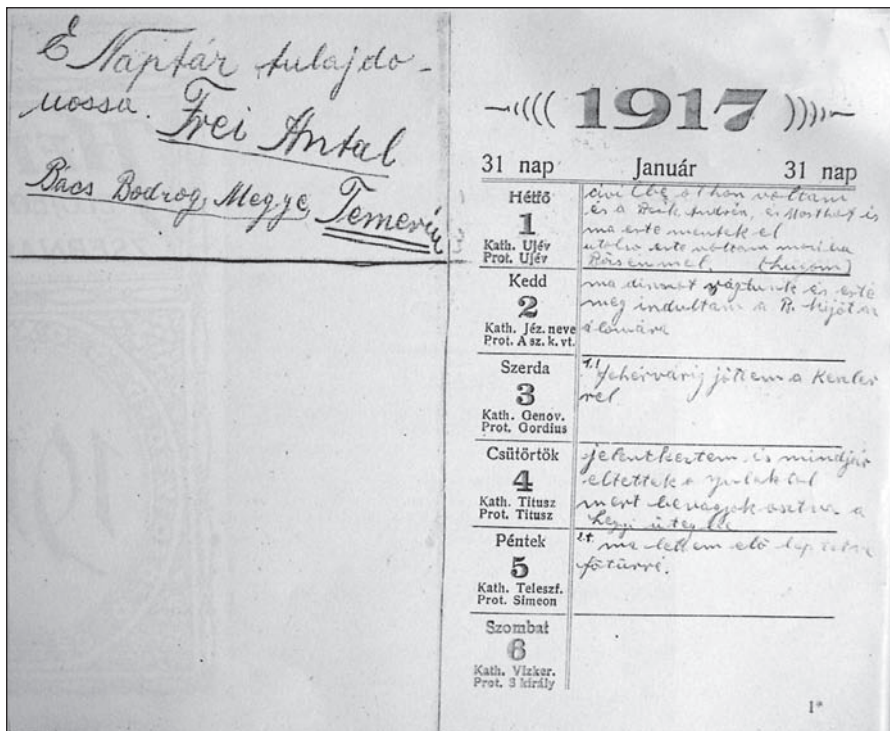 E Naptár tulajdo-
nossa. Frei Antal
Bács Bodrog, Megye, Temerin
1917
31 nap Január 31 nap
Hétfő
1
Kath. Ujév
Prot. Ujév
civilbe othon voltam
és a Deák András, és
ma este mentek el
utolso este voltam
Kedd
2
Kath. Jéz. neve
Prot. A sz. k. vt.
ma disznot vágtunk és este
meg indultam a
Szerda
3
Kath. Genov.
Prot. Gordius
Fehérvárig jöttem a
rel
Csütörtök
4
Kath. Titusz
Prot. Titusz
jelentkeztem és mindjár
eltettek a
mert bevagyok osztva a
Hegyi üteg
Péntek
5
Kath. Teleszf.
Prot. Simeon
ma lettem elő léptetve
főtűzzé.
Szombat
6
Kath. Vizker.
Prot. 3 király
1*